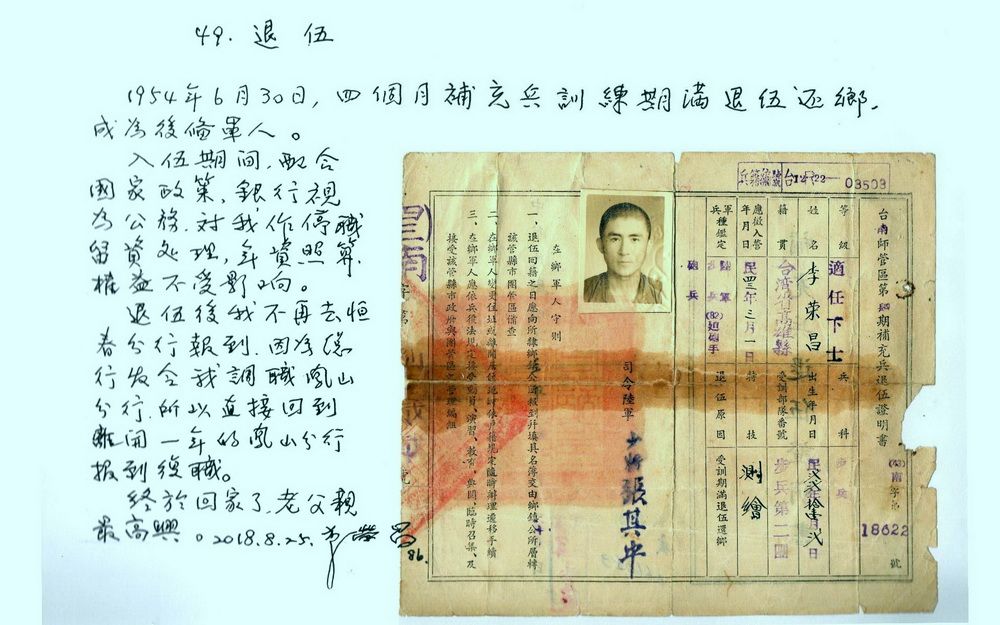 49. 退伍
1954年6月30日，四個月補充兵訓練期滿退伍还鄉，
成為後俻軍人。
入伍期间，配合
國家政策，銀行視
為公務，对我作停職
留資处理，年資照算，
權益不受影响。
退伍後我不再去恒
春分行報到，因為總
行发令我調職鳳山
分行，所以直接回到
離開一年的鳳山分行
報到復職。
終於回家了，老父親
最高興。2018.8.25.
86.
兵籍編號台12-22- 03503
台南師管區第 期補充兵退伍證明書
(43)南字第 18622 號
等級 適任下士
兵科 步兵
姓名 李荣昌
出生年月日
籍貫 台湾省高雄縣
受訓部隊番號 步兵第二團
應徵入營年月日 民四三年三月一日
特技 測繪
軍種兵種鑑定 陸軍 步兵 (82)迫砲手 砲兵
退伍原因 受訓期滿退伍還鄉
司令陸軍少將 張其中
在鄉軍人守則
一、退伍回籍之日應向所隸鄉鎮公所報到并填具名簿交由鄉鎮公所層轉
該管縣市團管區備查
二、在鄉軍人變更住址或離開居住地時依戶籍規定隨時辦理遷移手續
三、在鄉軍人應依兵役法規定接受動員、演習、教育、點閱、臨時召集、及
接受該管縣市政府與團管區之管理編組